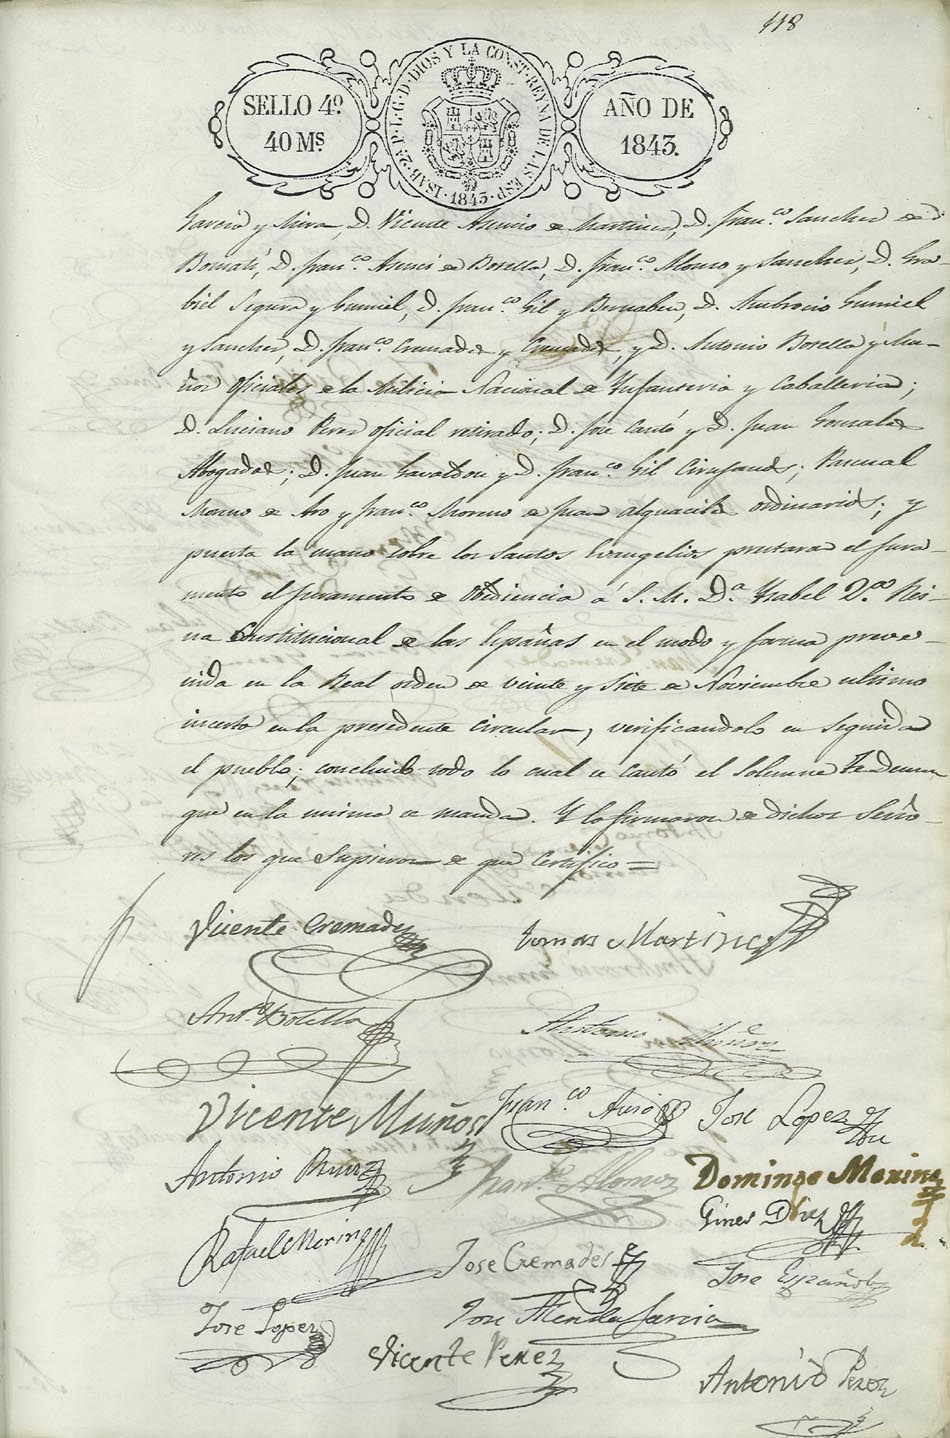 118
SELLO 4º.
40 Mˢ.
ISAB. 2ª. P. L. G. D. DIOS Y LA CONST. REYNA DE LAS ESP. 1843.
AÑO DE
1843.
Garcia y Mira, D. Vicente Asencio de Martinez, D. Franᶜᵒ. Sanchez de
Bernabé, D. Franᶜᵒ. Asencio de Botella, D. Franᶜᵒ. Alonso y Sanchez, D. Gra-
biel Segura y Gumiel, D. Franᶜᵒ. Gil y Bernabeu, D. Ambrocio Gumiel
y Sanchez, D. Franᶜᵒ. Cremades y Cremades, y D. Antonio Botella y Mu-
ñoz oficiales de la Milicia Nacional de Ynfanteria y Caballeria;
D. Luciano Perez oficial retirado; D. Jose Cantó y D. Juan Gonzalez
Abogados; D. Juan y D. Franᶜᵒ. Gil Cirujanos; Pascual
Moreno de Aro y Franᶜᵒ. Moreno de Juan alguaciles ordinarios; y
puesta la mano sobre los Santos Evangelios prestaron el jura-
mento el juramento de Obediencia á S. M. D.ª Ysabel 2.ª Rei-
na Constitucional de las Españas en el modo y forma preve-
nida en la Real orden de veinte y siete de Noviembre ultimo
incerto en la precedente circular, verificandolo en seguida
el pueblo; concluido todo lo cual se cantó el Solemne Te deum
que en la misma se manda. Y lo firmaron de dichos Seño-
res los que supieron de que Certifico =
Vicente Cremades
Tomas Martinez
Antº. Botella
Antonio Muñoz
Vicente Muños
Franᶜᵒ
Jose Lopez
Antonio Perez
Franᶜᵒ Alonso
Domingo Merino
Gines Diez
Rafael Merino
Jose Cremades
Jose Español
Jose Lopez
Jose Garcia
Vicente Perez
Antonio Perez